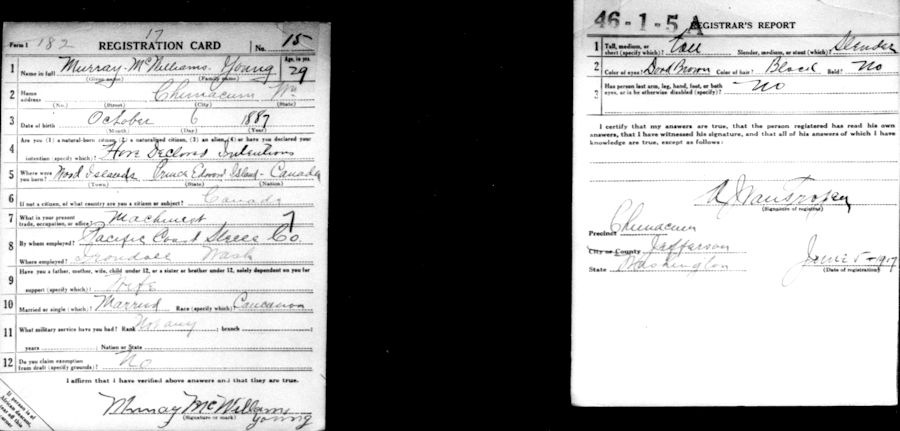 Form 1 182 17 REGISTRATION CARD No. 15
1 Name in full Murray McWilliams Young Age, in yrs. 29
(Given name) (Family name)
2 Home address Chimacum Wn
(No.) (Street) (City) (State)
3 Date of birth October 6 1887
(Month) (Day) (Year)
Are you (1) a natural-born citizen, (2) a naturalized citizen, (3) an alien, (4) or have you declared your
4 intention (specify which)? Have Declared Intentions
5 Where were you born? Wood Islands Prince Edward Island - Canada
(Town) (State) (Nation)
6 If not a citizen, of what country are you a citizen or subject? Canada
7 What is your present trade, occupation, or office? Machinest 7
8 By whom employed? Pacific Coast Steel Co.
Where employed? Irondale Wash
9 Have you a father, mother, wife, child under 12, or a sister or brother under 12, solely dependent on you for
support (specify which)? Wife
10 Married or single (which)? Married Race (specify which)? Caucasian
11 What military service have you had? Rank Not any ; branch
years ; Nation or State
12 Do you claim exemption from draft (specify grounds)? No
I affirm that I have verified above answers and that they are true.
Murray McWilliams
Young
(Signature or mark)
If person is of
African descent,
tear off this
corner
46-1-5 A REGISTRAR'S REPORT
1 Tall, medium, or short (specify which)? tall Slender, medium, or stout (which)? Slender
2 Color of eyes? Dark Brown Color of hair? Black Bald? No
3 Has person lost arm, leg, hand, foot, or both
eyes, or is he otherwise disabled (specify)? No
I certify that my answers are true, that the person registered has read his own
answers, that I have witnessed his signature, and that all of his answers of which I have
knowledge are true, except as follows:
(Signature of registrar)
Precinct Chimacum
City or County Jefferson
State Washington June 5-1917
(Date of registration)